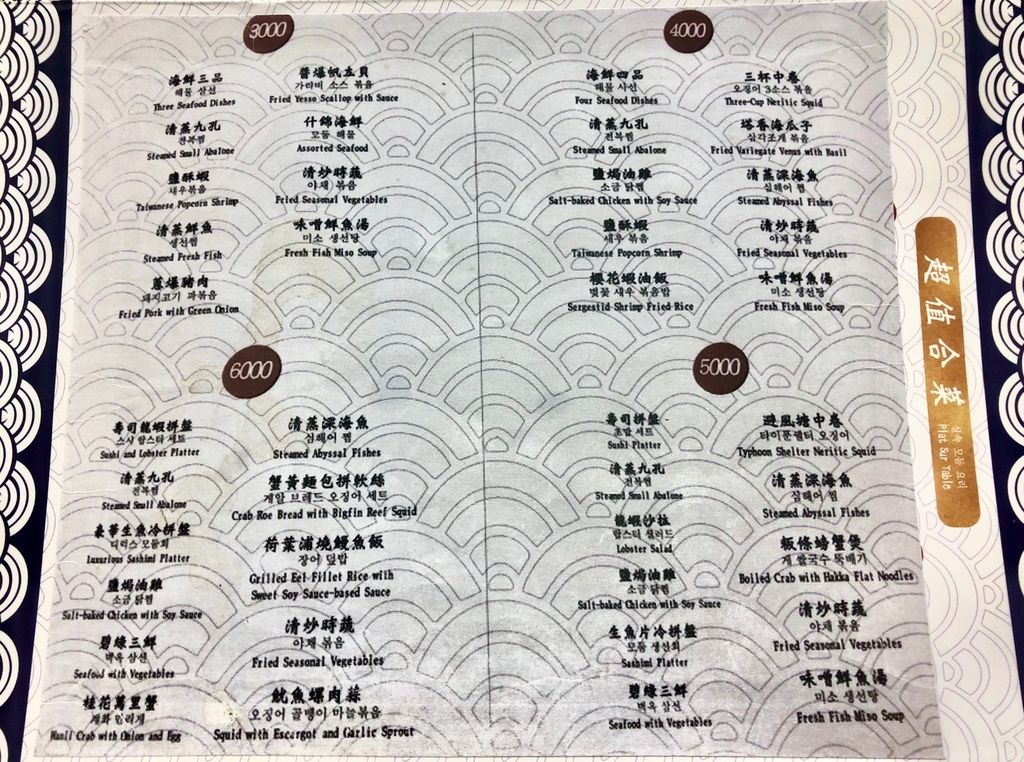 3000
海鮮三品
해물 삼선
Three Seafood Dishes
清蒸九孔
전복찜
Steamed Small Abalone
鹽酥蝦
새우볶음
Taiwanese Popcorn Shrimp
清蒸鮮魚
생선찜
Steamed Fresh Fish
蔥爆豬肉
돼지고기 파볶음
Fried Pork with Green Onion
醬爆帆立貝
가리비 소스 볶음
Fried Yesso Scallop with Sauce
什錦海鮮
모듬 해물
Assorted Seafood
清炒時蔬
야채 볶음
Fried Seasonal Vegetables
味噌鮮魚湯
미소 생선탕
Fresh Fish Miso Soup
4000
海鮮四品
해물 사선
Four Seafood Dishes
清蒸九孔
전복찜
Steamed Small Abalone
鹽焗油雞
소금 닭찜
Salt-baked Chicken with Soy Sauce
鹽酥蝦
새우 볶음
Taiwanese Popcorn Shrimp
櫻花蝦油飯
벚꽃 새우 볶음밥
Sergestid Shrimp Fried Rice
三杯中卷
오징어 3소스 볶음
Three-Cup Neritic Squid
塔香海瓜子
삼각조개 볶음
Fried Variegate Venus with Basil
清蒸深海魚
심해어 찜
Steamed Abyssal Fishes
清炒時蔬
야채 볶음
Fried Seasonal Vegetables
味噌鮮魚湯
미소 생선탕
Fresh Fish Miso Soup
6000
壽司龍蝦拼盤
스시 랍스타 세트
Sushi and Lobster Platter
清蒸九孔
전복찜
Steamed Small Abalone
豪華生魚冷拼盤
디럭스 모듬회
Luxurious Sashimi Platter
鹽焗油雞
소금 닭찜
Salt-baked Chicken with Soy Sauce
碧綠三鮮
벽옥 삼선
Seafood with Vegetables
桂花萬里蟹
계화 만리게
Wanli Crab with Onion and Egg
清蒸深海魚
심해어 찜
Steamed Abyssal Fishes
蟹黃麵包拼軟絲
게알 브레드 오징어 세트
Crab Roe Bread with Bigfin Reef Squid
荷葉浦燒鰻魚飯
장어 덮밥
Grilled Eel Fillet Rice with
Sweet Soy Sauce-based Sauce
清炒時蔬
야채 볶음
Fried Seasonal Vegetables
魷魚螺肉蒜
오징어 골뱅이 마늘볶음
Squid with Escargot and Garlic Sprout
5000
壽司拼盤
초밥 세트
Sushi Platter
清蒸九孔
전복찜
Steamed Small Abalone
龍蝦沙拉
랍스타 샐러드
Lobster Salad
鹽焗油雞
소금 닭찜
Salt-baked Chicken with Soy Sauce
生魚片冷拼盤
모듬 생선회
Sashimi Platter
碧綠三鮮
벽옥 삼선
Seafood with Vegetables
避風塘中卷
타이푼쉘터 오징어
Typhoon Shelter Neritic Squid
清蒸深海魚
심해어 찜
Steamed Abyssal Fishes
粄條螃蟹煲
게 쌀국수 뚝배기
Boiled Crab with Hakka Flat Noodles
清炒時蔬
야채 볶음
Fried Seasonal Vegetables
味噌鮮魚湯
미소 생선탕
Fresh Fish Miso Soup
超值合菜
실속 모듬 요리
Plat Sur Table